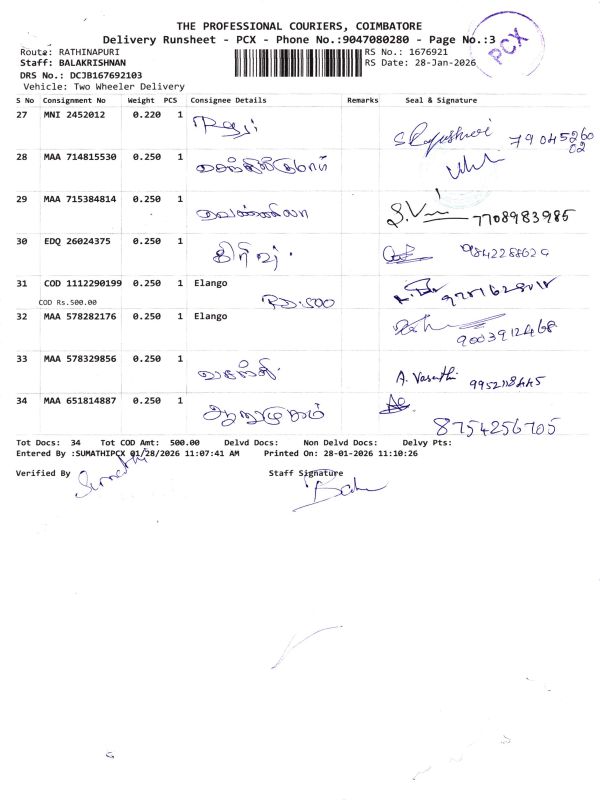 THE PROFESSIONAL COURIERS, COIMBATORE
Delivery Runsheet - PCX - Phone No.:9047080280 - Page No.:3
PCX
Route: RATHINAPURI RS No.: 1676921
Staff: BALAKRISHNAN RS Date: 28-Jan-2026
DRS No.: DCJB167692103
Vehicle: Two Wheeler Delivery
S No Consignment No Weight PCS Consignee Details Remarks Seal & Signature
27 MNI 2452012 0.220 1
7904526002
28 MAA 714815530 0.250 1
29 MAA 715384814 0.250 1 வெண்ணிலா S.V 7708983985
30 EDQ 26024375 0.250 1
31 COD 1112290199 0.250 1 Elango
COD Rs.500.00 RS:500
32 MAA 578282176 0.250 1 Elango
9003912468
33 MAA 578329856 0.250 1 வசந்தி A. Vasanthi
34 MAA 651814887 0.250 1 ஆறுமுகம் 8754256705
Tot Docs: 34 Tot COD Amt: 500.00 Delvd Docs: Non Delvd Docs: Delvy Pts:
Entered By :SUMATHIPCX 01/28/2026 11:07:41 AM Printed On: 28-01-2026 11:10:26
Verified By Staff Signature